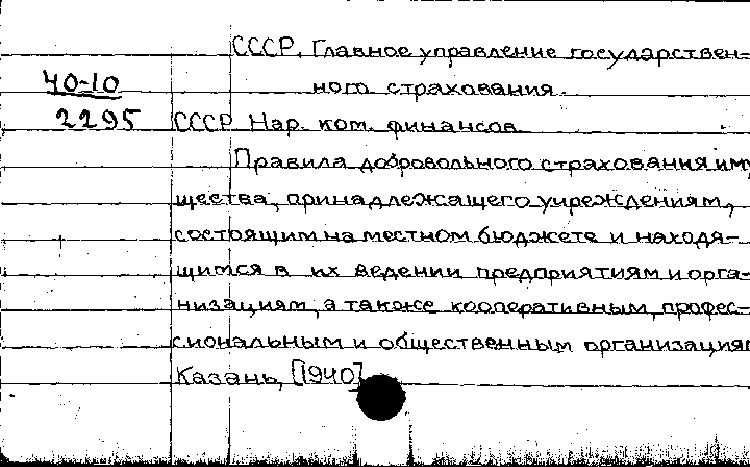 СССР. Главное управление государствен-
ного страхования.
40-10
2295
СССР Нар. ком. финансов
Правила добровольного страхования иму
щества, принадлежащего учреждениям,
состоящим на местном бюджете и находя-
щимся в их ведении предприятиям и орга-
низациям, а также кооперативным, профес-
сиональным и общественным организациям
Казань, [1940]